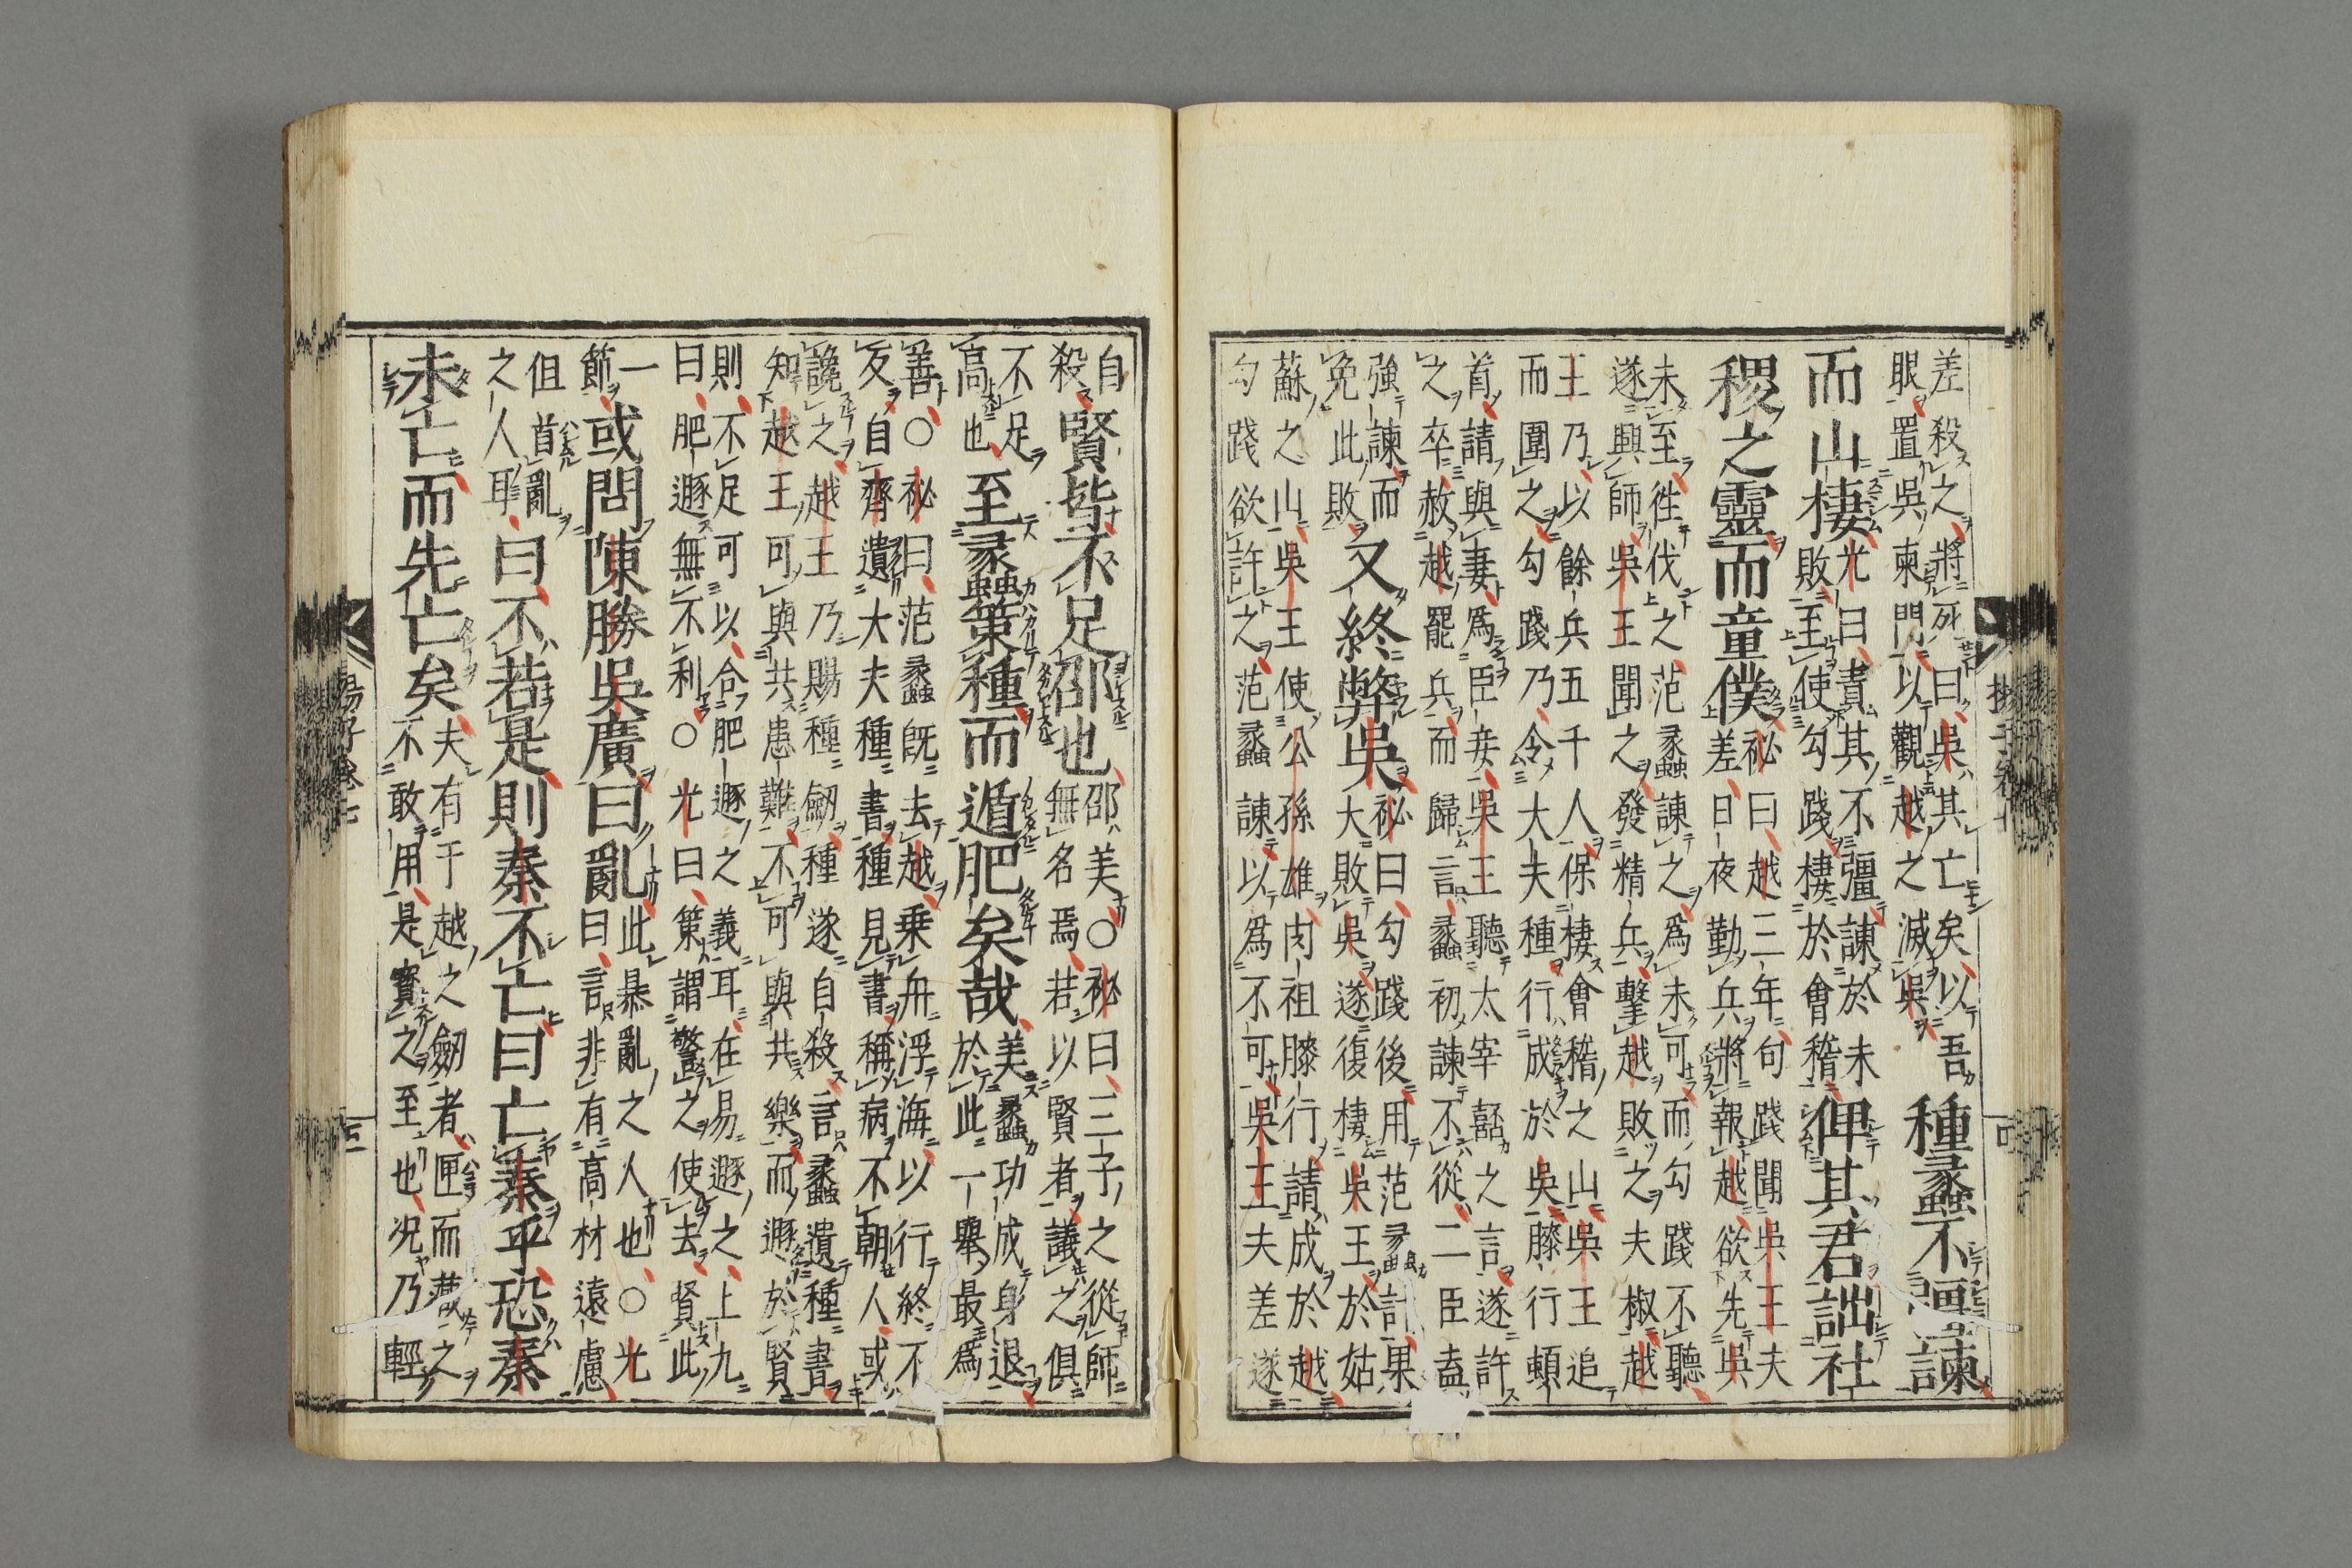 差殺之將死曰吳其亡矣以吾
眼置吳東門以觀越之滅吳
種蠡不彊諫
而山棲
光曰責其不彊諫於未
敗至使勾踐棲於會稽
俾其君詘社
稷之靈而童僕
祕曰越三年句踐聞吳王夫
差日夜勤兵將報越欲先吳
未至徃伐之范蠡諫之爲未可而勾踐不聽
遂興師吳王聞之發精兵擊越敗之夫椒越
王乃以餘兵五千人保棲會稽之山吳王追
而圍之勾踐乃令大夫種行成於吳膝行頓
首請與妻爲臣妾吳王聽太宰嚭之言遂許
之卒赦越罷兵而歸言蠡初諫不從二臣盍
強諫而
免此敗
又終弊吳
祕曰勾踐後用范蠡計果
大敗吳遂復棲吳王於姑
蘇之山吳王使公孫雄肉祖膝行請成於越
勾踐欲許之范蠡諫以爲不可吳王夫差遂
自
殺
賢皆不足邵也
邵美○祕曰三子之從師
無名焉若以賢者議之俱
不足
高也
至蠡策種而遁肥矣哉
美蠡功成身退
於此一舉最爲
善○祕曰范蠡既去越乗舟浮海以行終不
反自齊遺大夫種書種見書稱病不朝人或
讒之越王乃賜種劒種遂自殺言蠡遺種書
知越王可與共患難不可與共樂而遯於賢
則不足可以合肥遯之義耳在易遯之上九
曰肥遯無不利○光曰策謂警之使去賢此
一
節
或問陳勝吳廣曰亂
此暴亂之人也○光
曰言非有高材遠慮
但首亂
之人耳
曰不若是則秦不亡曰亡秦乎恐秦
未亡而先亡矣
夫有干越之劒者匣而藏之
不敢用是寳之至也況乃輕